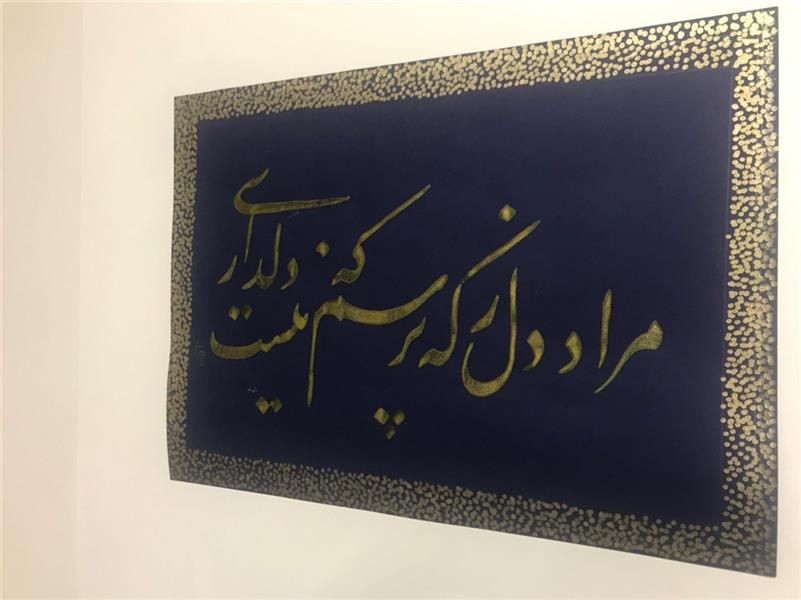 مراد دل ز که پرسم که نیست دلداری